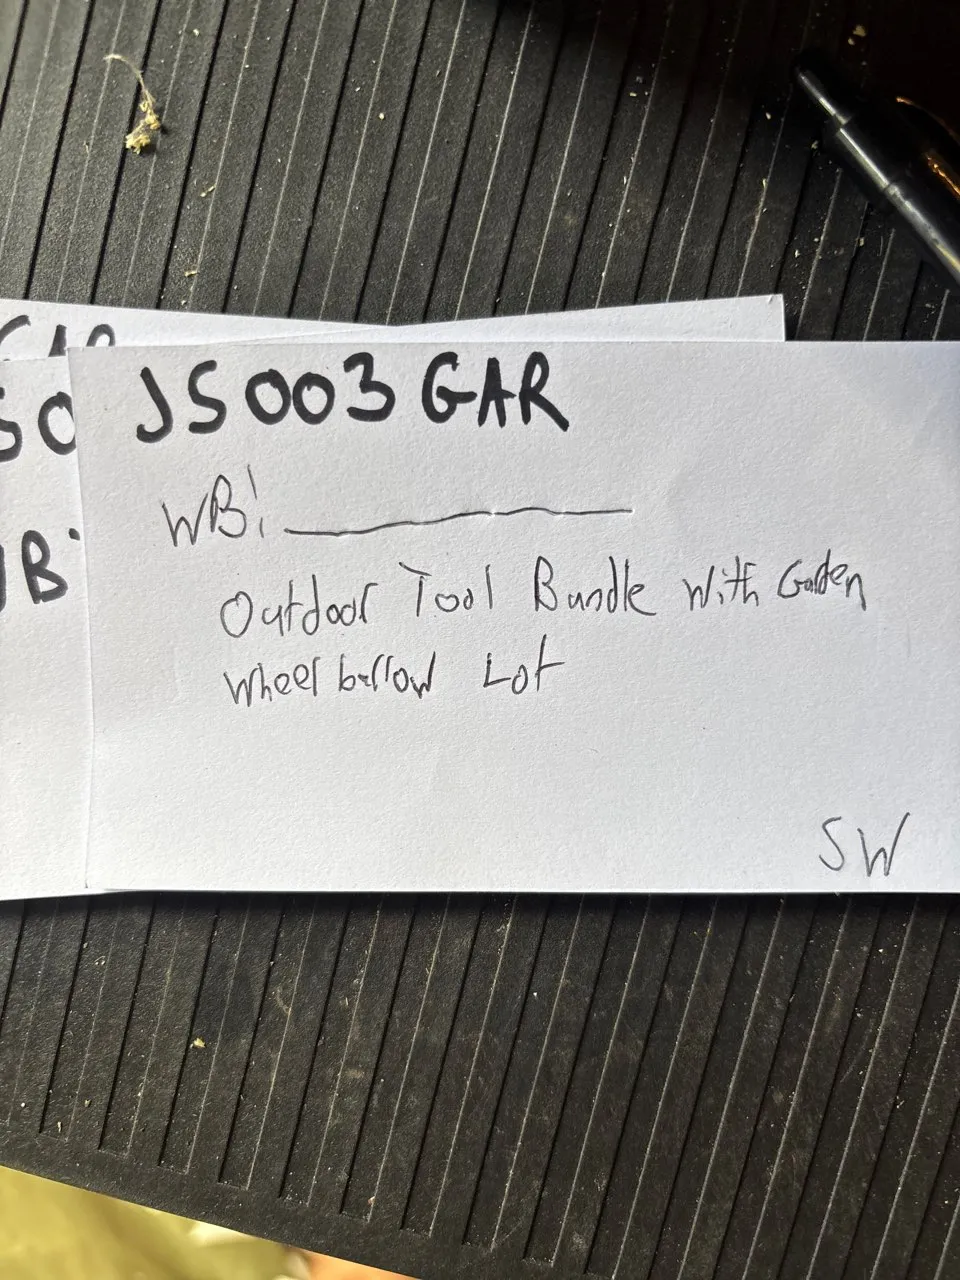 GAR
SO
JS003GAR
WB: ________
B:
Outdoor Tool Bundle With Garden
Wheel barrow Lot
SW